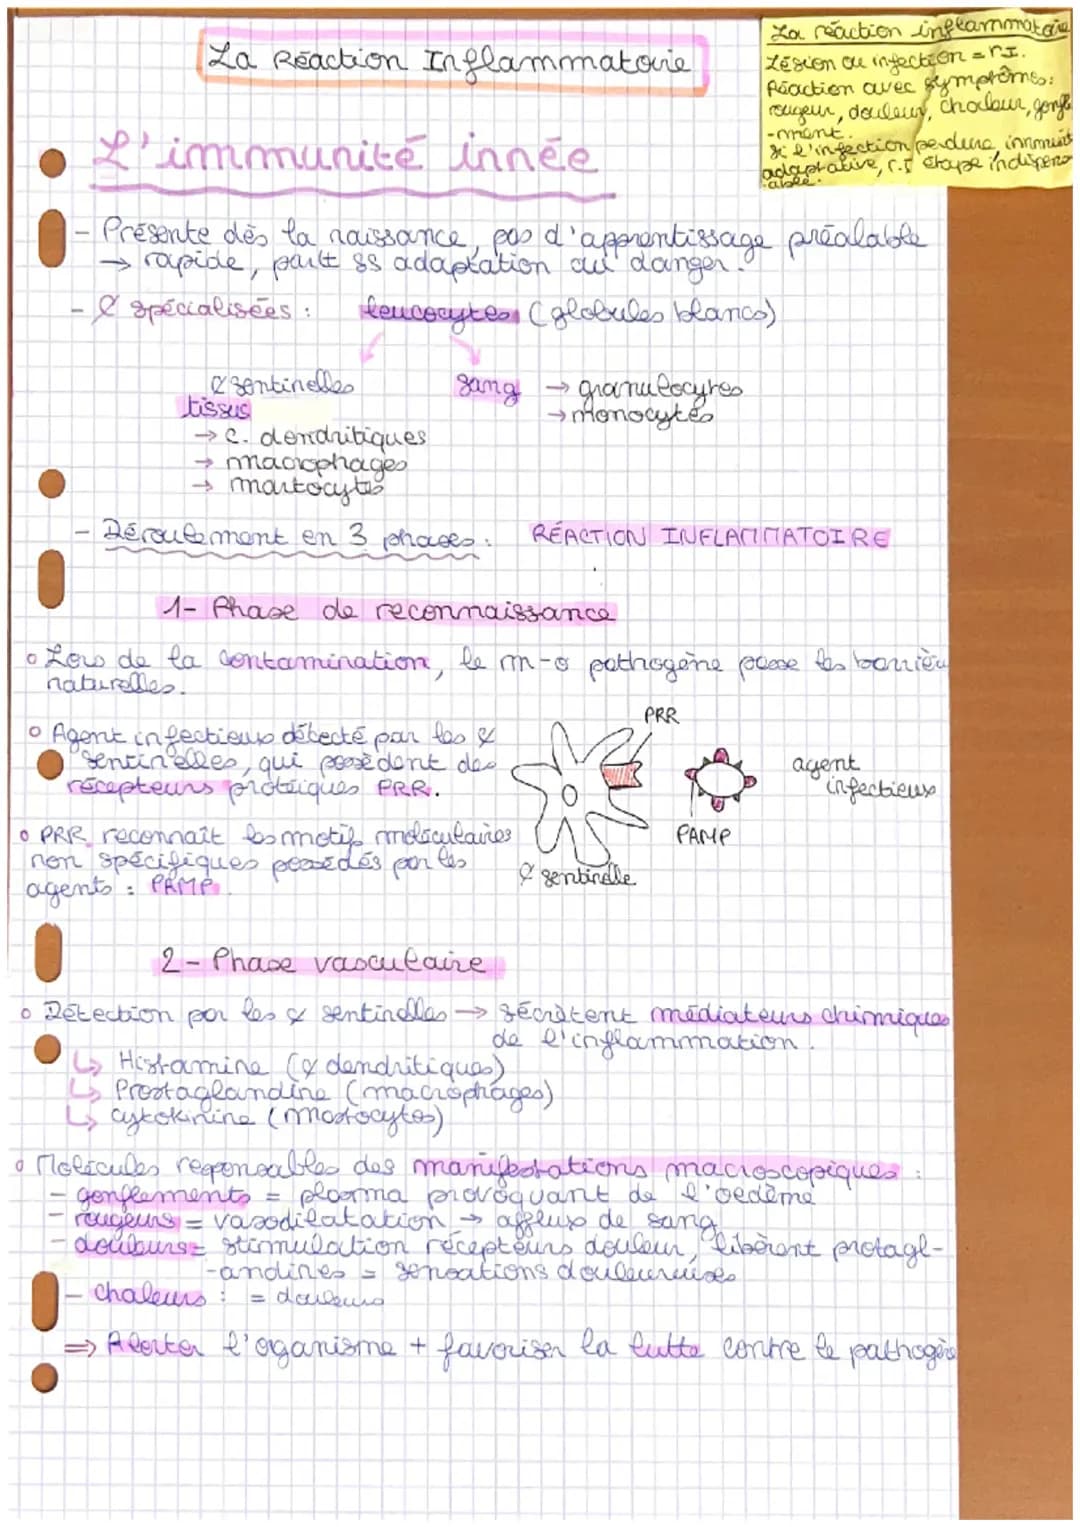 La Réaction Inflammatoire
La réaction inflammatoire
Lésion ou infection = r.I.
Réaction avec symptômes :
rougeur, douleur, chaleur, gonfle
-ment.
si l'infection perdure immunité
adaptative, r.I étape indispens
-able.
L'immunité innée
- Présente dès la naissance, pas d'apprentissage préalable
→ rapide, partt ss adaptation au danger.
- ₡ spécialisées : leucocytes (globules blancs)
₡ sentinelles
tissus
→ c. dendritiques
→ macrophages
→ mastocytes
sang → granulocytes
→ monocytes
- Déroulement en 3 phases : RÉACTION INFLAMMATOIRE
1- Phase de reconnaissance
o Lors de la contamination, le m-o pathogène passe les barrièr
naturelles.
o Agent infectieux détecté par les ₡
sentinelles, qui possèdent des
récepteurs protéiques PRR.
o PRR reconnaît les motifs moléculaires
non spécifiques possédés par les
agents : PAMP.
PRR
agent
infectieux
PAMP
₡ sentinelle
2- Phase vasculaire
o Détection par les ₡ sentinelles → sécrètent médiateurs chimiques
de l'inflammation.
↳ Histamine (₡ dendritiques)
↳ Prostaglandine (macrophages)
↳ cytokinine (mastocytes)
o Molécules responsables des manifestations macroscopiques :
- gonflements = plasma provoquant de l'oedème
- rougeurs = vasodilatation → afflux de sang
- douleurs = stimulation récepteurs douleur, libèrent protagl-
-andines = sensations douleureuses
- chaleurs : = douleurs
⇒ Alerter l'organisme + favoriser la lutte contre le pathogène